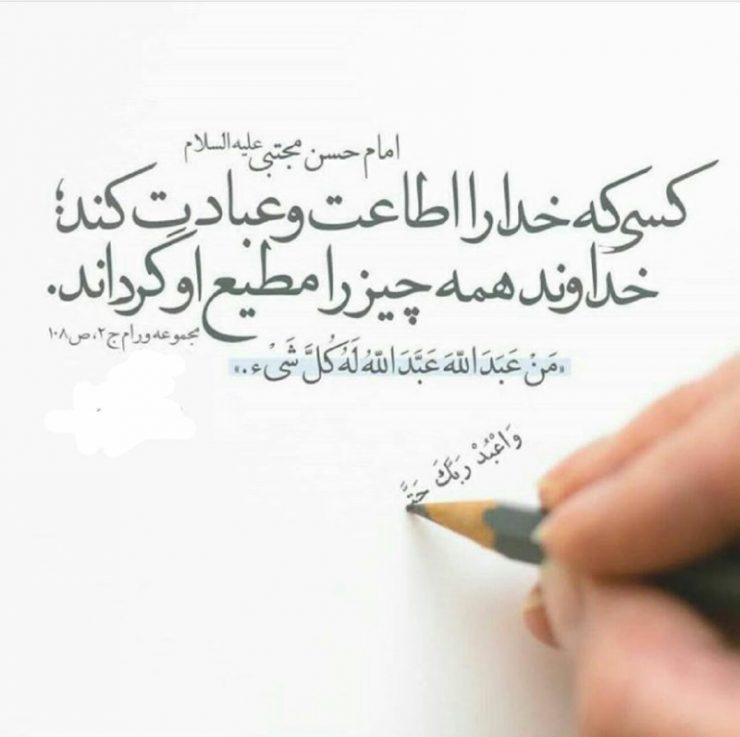 امام حسن مجتبی علیه السلام
کسی که خدا را اطاعت و عبادت کند؛
خداوند همه چیز را مطیع او گرداند.
مجموعه ورام ج۲، ص۱۰۸
«مَنْ عَبَدَ اللهَ عَبَّدَ اللهُ لَهُ كُلَّ شَیْء.»
وَاعْبُدْ رَبَّكَ حَتَّ